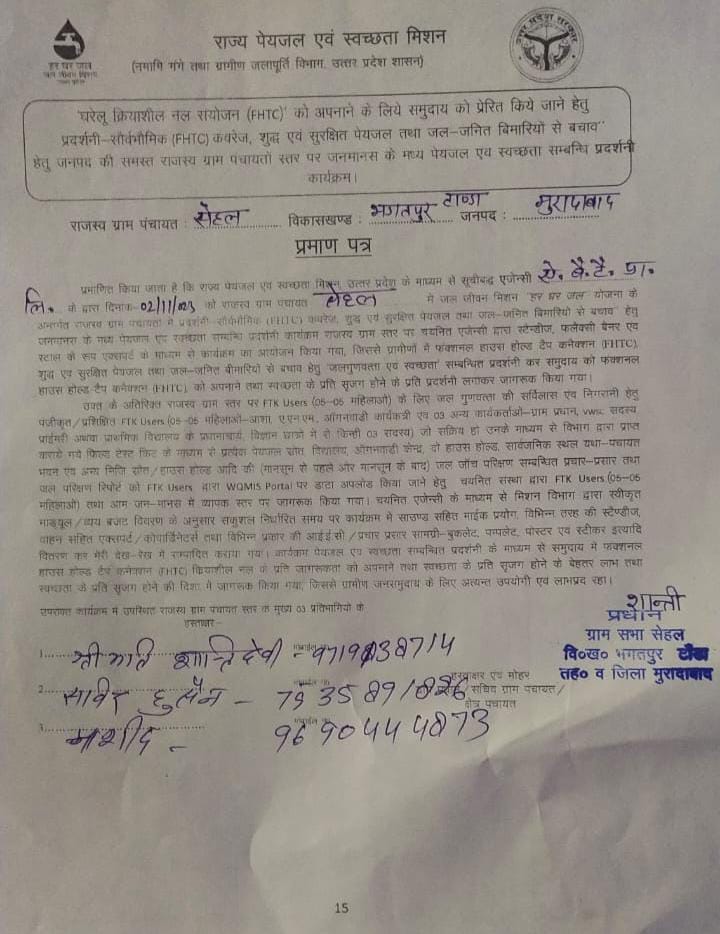 हर घर जल
जल जीवन मिशन
राज्य पेयजल एवं स्वच्छता मिशन
(नमामि गंगे तथा ग्रामीण जलापूर्ति विभाग, उत्तर प्रदेश शासन)
उत्तर प्रदेश सरकार
'घरेलू क्रियाशील नल संयोजन (FHTC)' को अपनाने के लिये समुदाय को प्रेरित किये जाने हेतु
प्रदर्शनी–सौर्वभौमिक (FHTC) कवरेज, शुद्ध एवं सुरक्षित पेयजल तथा जल–जनित बिमारियों से बचाव"
हेतु जनपद की समस्त राजस्व ग्राम पंचायतों स्तर पर जनमानस के मध्य पेयजल एवं स्वच्छता सम्बन्धि प्रदर्शनी
कार्यक्रम।
राजस्व ग्राम पंचायत : सेहल विकासखण्ड : भगतपुर टाण्डा जनपद : मुरादाबाद
प्रमाण पत्र
प्रमाणित किया जाता है कि राज्य पेयजल एवं स्वच्छता मिशन, उत्तर प्रदेश के माध्यम से सूचीबद्ध एजेन्सी
लि० के द्वारा दिनांक 02/11/023 को राजस्व ग्राम पंचायत सेहल में जल जीवन मिशन 'हर घर जल' योजना के
अन्तर्गत राजस्व ग्राम पंचायतों में प्रदर्शनी–सौर्वभौमिक (FHTC) कवरेज, शुद्ध एवं सुरक्षित पेयजल तथा जल–जनित बिमारियों से बचाव" हेतु
जनमानस के मध्य पेयजल एवं स्वच्छता सम्बन्धि प्रदर्शनी कार्यक्रम राजस्व ग्राम स्तर पर चयनित एजेन्सी द्वारा स्टेन्डीज, फलैक्सी बैनर एवं
स्टाल के रूप एक्सपर्ट के माध्यम से कार्यक्रम का आयोजन किया गया, जिससे ग्रामीणों में फंक्शनल हाउस होल्ड टैप कनेक्शन (FHTC),
शुद्ध एवं सुरक्षित पेयजल तथा जल–जनित बीमारियों से बचाव हेतु 'जलगुणवत्ता एवं स्वच्छता' सम्बन्धित प्रदर्शनी कर समुदाय को फंक्शनल
हाउस होल्ड टैप कनेक्शन (FHTC), को अपनाने तथा स्वच्छता के प्रति सृजग होने के प्रति प्रदर्शनी लगाकर जागरूक किया गया।
उक्त के अतिरिक्त राजस्व ग्राम स्तर पर FTK Users (05–05 महिलाओं) के लिए जल गुणवत्ता की सर्विलांस एवं निगरानी हेतु
पंजीकृत/प्रशिक्षित FTK Users (05–05 महिलाओं–आशा, ए.एन.एम., आँगनवाडी कार्यकत्री एवं 03 अन्य कार्यकर्ताओं–ग्राम प्रधान, vwsc सदस्य,
प्राईमरी अथवा प्राथमिक विद्यालय के प्रधानाचार्य, विज्ञान छात्रों में से किन्ही 03 सदस्य) जो सक्रिय हो उनके माध्यम से विभाग द्वारा प्राप्त
कराये गये फिल्ड टेस्ट किट के माध्यम से प्रत्येक पेयजल स्रोत, विद्यालय, आँगनवाडी केन्द्र, दो हाउस होल्ड, सार्वजनिक स्थल यथा–पंचायत
भवन एवं अन्य निजि स्रोत/हाउस होल्ड आदि की (मानसून से पहले और मानसून के बाद) जल जाँच परिक्षण सम्बन्धित प्रचार–प्रसार तथा
जल परिक्षण रिपोर्ट को FTK Users द्वारा WQMIS Portal पर डाटा अपलोड किया जाने हेतु चयनित संस्था द्वारा FTK Users (05–05
महिलाओं) तथा आम जन–मानस में व्यापक स्तर पर जागरूक किया गया। चयनित एजेन्सी के माध्यम से मिशन विभाग द्वारा स्वीकृत
माड्यूल/व्यय बजट विवरण के अनुसार सकुशल निर्धारित समय पर कार्यक्रम में साउण्ड सहित माईक प्रयोग, विभिन्न तरह की स्टैण्डीज,
वाहन सहित एक्सपर्ट/कोर्पाडिनेटर्स तथा विभिन्न प्रकार की आई.ई.सी./प्रचार प्रसार सामग्री–बुकलेट, पम्पलेट, पोस्टर एवं स्टीकर इत्यादि
वितरण कर मेरी देख–रेख में सम्पादित कराया गया। कार्यक्रम पेयजल एवं स्वच्छता सम्बन्धित प्रदर्शनी के माध्यम से समुदाय में फंक्शनल
हाउस होल्ड टैप कनेक्शन (FHTC) कियाशील नल के प्रति जागरूकता को अपनाने तथा स्वच्छता के प्रति सृजग होने के बेहतर लाभ तथा
स्वच्छता के प्रति सृजग होने की दिशा में जागरूक किया गया, जिससे ग्रामीण जनसमुदाय के लिए अत्यन्त उपयोगी एवं लाभप्रद रहा।
उपरोक्त कार्यक्रम में उपस्थित राजस्व ग्राम पंचायत स्तर के मुख्य 03 प्रतिभागियों के
हस्ताक्षर–
शान्ती
प्रधान
ग्राम सभा सेहल
वि०ख० भगतपुर टांडा
तह० व जिला मुरादाबाद
1. श्रीमति शान्ति देवी –
2. साबिर हुसैन –
हस्ताक्षर एवं मोहर
सचिव ग्राम पंचायत/
क्षेत्र पंचायत
3. – 9690444873
15